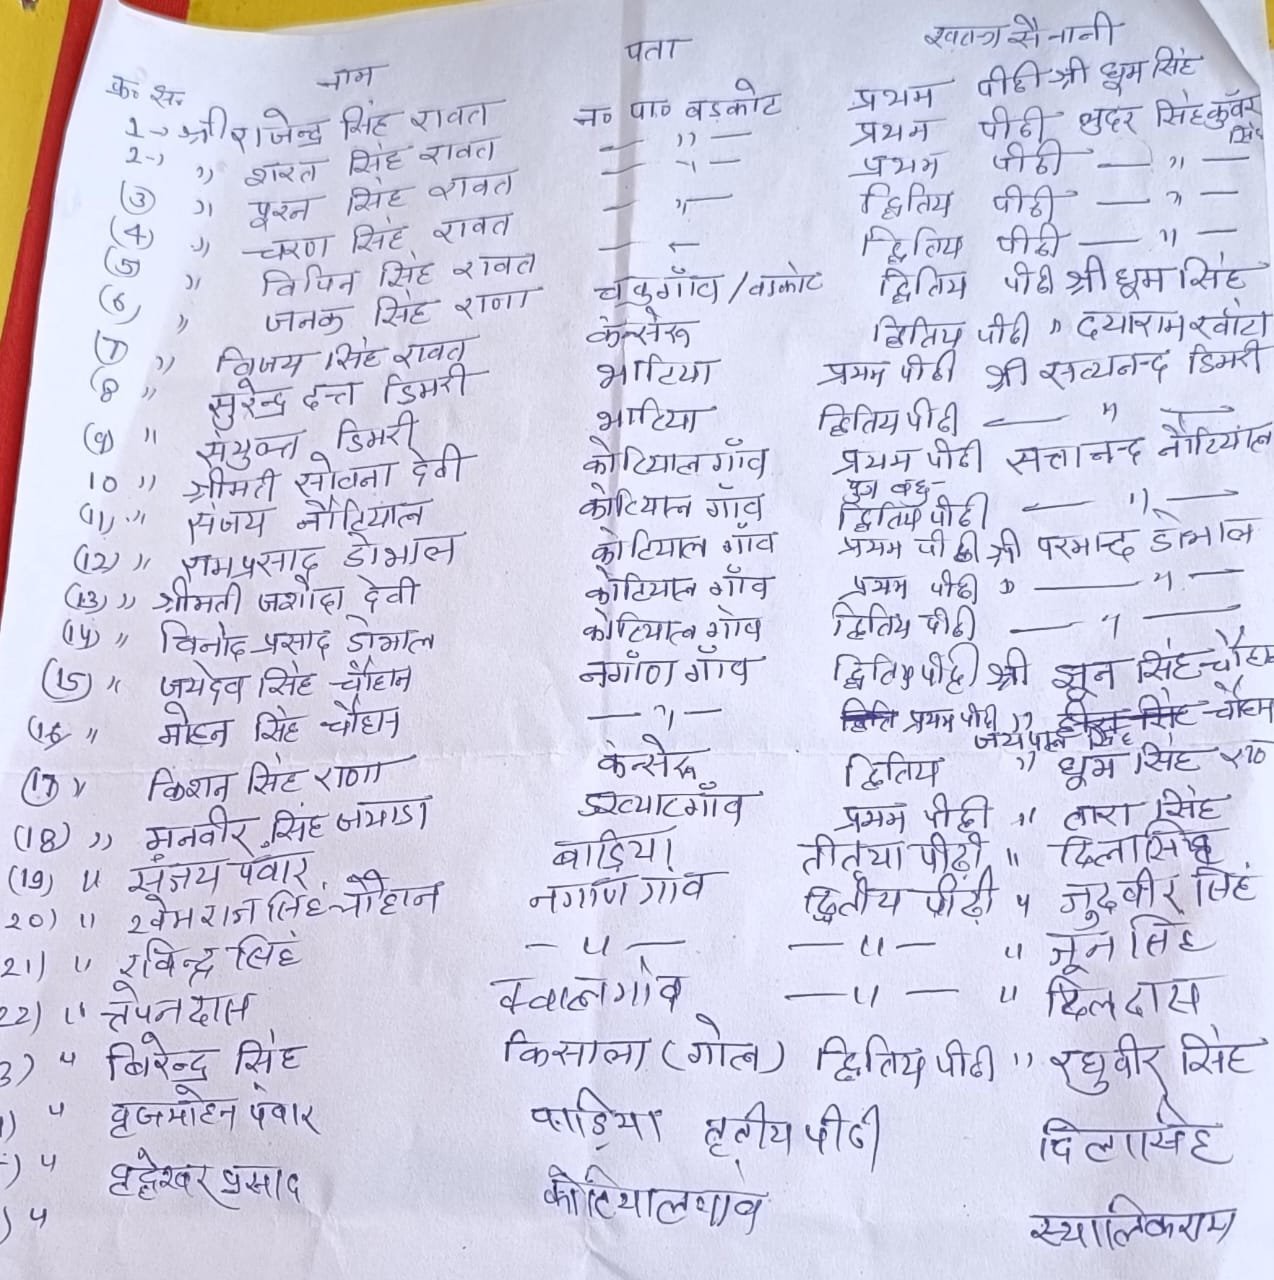 क्र० स० नाम पता स्वतन्त्र सैनानी
1-) श्री राजेन्द्र सिंह रावत न० पा० बड़कोट प्रथम पीढी श्री धूम सिंह
2-) " शरत सिंह रावत — " — प्रथम पीढी सिंह कुँवर सिंह
(3) " पूरन सिंह रावत — " — प्रथम पीढी — " —
(4) " चरण सिंह रावत — " — द्वितिय पीढी — " —
(5) " विपिन सिंह रावत — " — द्वितिय पीढी — " —
(6) " जनक सिंह राणा /बडकोट द्वितिय पीढी श्री धूम सिंह
(7) " विजय सिंह रावत कन्सेरू द्वितिय पीढी " दयाराम
(8 " सुरेन्द्र दत्त डिमरी भाटिया प्रथम पीढी श्री सत्यनन्द डिमरी
(9) " संयुक्त डिमरी भाटिया द्वितिय पीढी — " —
10 " श्रीमती सोवना देवी कोटियाल गाँव प्रथम पीढी सत्तानन्द नौटियाल
पुत्र बधु-
(11) " संजय नौटियाल कोटियाल गाँव द्वितिय पीढी — " —
(12) " रामप्रसाद डोभाल कोटियाल गाँव प्रथम पीढी श्री परमान्द डोभाल
(13) " श्रीमती जशोदा देवी कोटियाल गाँव प्रथम पीढी " — " —
(14) " विनोद प्रसाद डोभाल कोटियाल गाँव द्वितिय पीढी — " —
(15) " जयदेव सिंह चौहान नगाँण गाँव द्वितिय पीढी श्री झून सिंह चौहान
(16) " मोहन सिंह चौहान — " — प्रथम पीढी " चौहान
जयपाल सिंह
(17) " किशन सिंह राणा कन्सेरू द्वितिय " धूम सिंह
(18) " मनवीर सिंह जयाडा डख्याटगाँव प्रथम पीढी " तारा सिंह
(19) " संजय पंवार बाडिया तीतृया पीढी " दिला सिंह
20) " खेमराज सिंह चौहान नगाण गांव द्वितीय पीढी " जुदवीर सिंह
21) " रविन्द्र सिंह — " — — " — " जून सिंह
22) " तेपन दास क्वालगाँव — " — " दिलदास
3) " बिरेन्द्र सिंह किसाला (गोल) द्वितिय पीढी " रघुवीर सिंह
) " बृजमोहन पंवार बाडिया तृतीय पीढी दिलासिंह
) " प्रसाद कोटियालगांव स्यालिकराम
) "